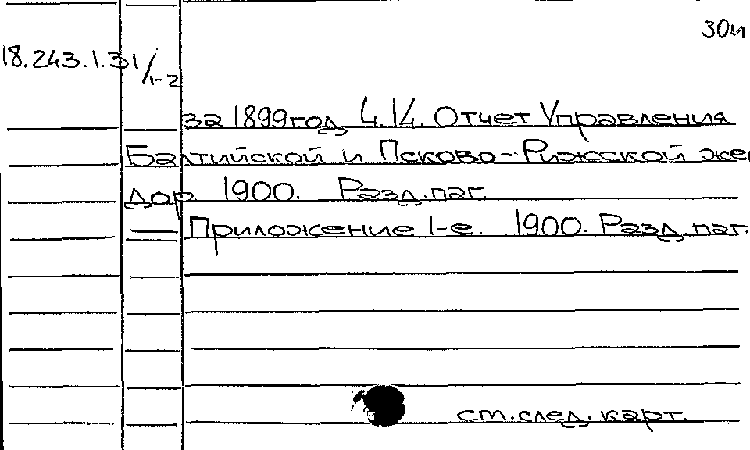 30м
18.243.1.31/1-2
за 1899 год. Ч. 14. Отчет Управления
Балтийской и Псково-Рижской жел
дор 1900. Разд. паг.
— Приложение 1-е. 1900. Разд. паг.
см. след. карт.